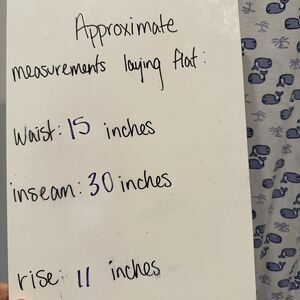 Approximate
measurements laying flat:
Waist: 15 inches
inseam: 30 inches
rise: 11 inches